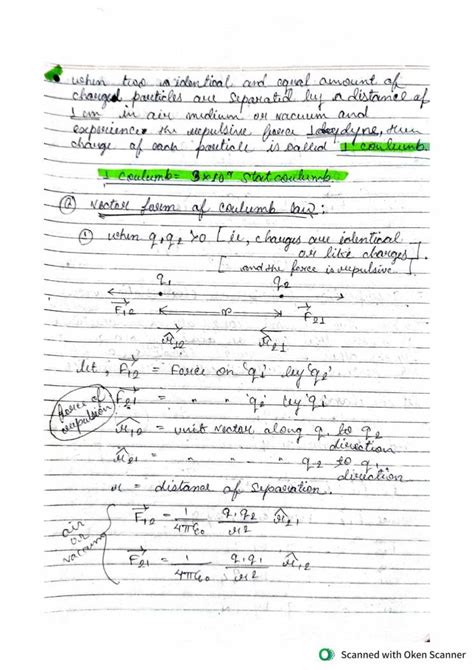 when two identical and equal amount of
charged particles are separated by a distance of
1 cm in air medium or vacuum and
experience the repulsive force 1 dyne, then
charge of each particle is called 1 coulumb
1 coulumb = 3×10⁹ stat coulumb
② Vector form of coulumb law :
① when q₁q₂ >0 [ie, charges are identical
or like charges]
[and the force is repulsive]
q₁ q₂
F₁₂ r F₂₁
r̂₁₂ r̂₂₁
let, F₁₂ = Force on 'q₁' by 'q₂'
force of repulsion
F₂₁ = " " 'q₂' by 'q₁'
r̂₁₂ = unit vector along q₁ to q₂
direction
r̂₂₁ = " " " q₂ to q₁
direction
r = distance of separation.
air or vaccum
F₁₂ = 1/4πε₀ q₁q₂/r² r̂₂₁
F₂₁ = 1/4πε₀ q₁q₁/r² r̂₁₂
Scanned with Oken Scanner